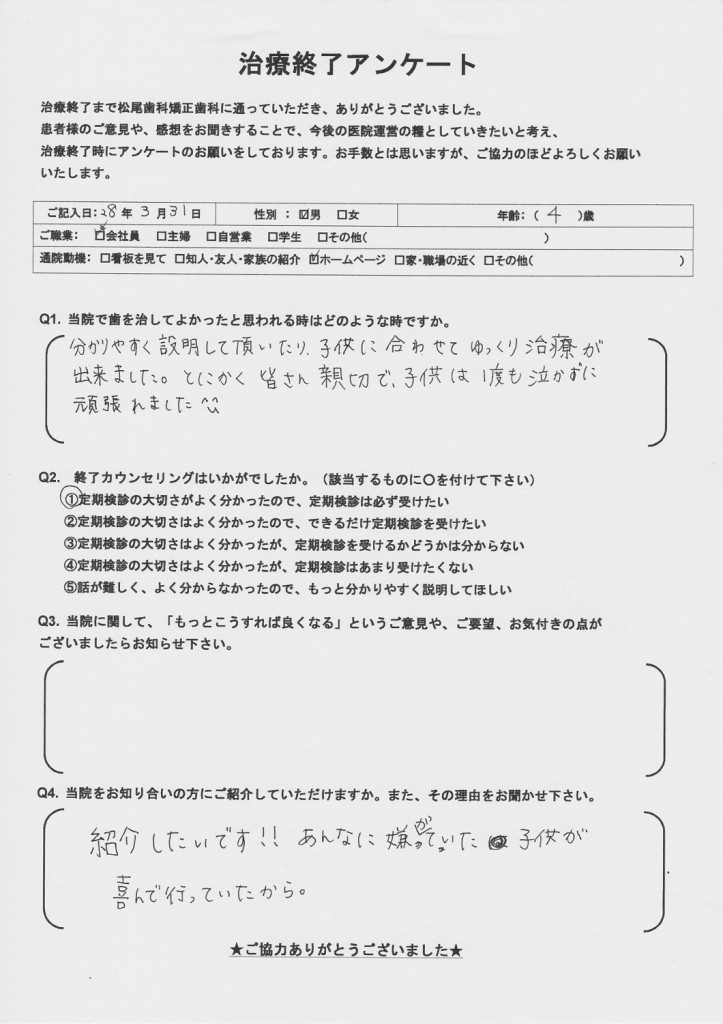 治療終了アンケート
治療終了まで松尾歯科矯正歯科に通っていただき、ありがとうございました。
患者様のご意見や、感想をお聞きすることで、今後の医院運営の糧としていきたいと考え、
治療終了時にアンケートのお願いをしております。お手数とは思いますが、ご協力のほどよろしくお願い
いたします。
ご記入日：28年 3月31日 性別 ： ☑男 □女 年齢：（ 4 ）歳
ご職業： ☑会社員 □主婦 □自営業 □学生 □その他（ ）
通院動機： □看板を見て □知人・友人・家族の紹介 ☑ホームページ □家・職場の近く □その他（ ）
Q1. 当院で歯を治してよかったと思われる時はどのような時ですか。
分かりやすく説明して頂いたり、子供に合わせてゆっくり治療が
出来ました。とにかく皆さん親切で、子供は1度も泣かずに
頑張れました
Q2. 終了カウンセリングはいかがでしたか。（該当するものに○を付けて下さい）
①定期検診の大切さがよく分かったので、定期検診は必ず受けたい
②定期検診の大切さはよく分かったので、できるだけ定期検診を受けたい
③定期検診の大切さはよく分かったが、定期検診を受けるかどうかは分からない
④定期検診の大切さはよく分かったが、定期検診はあまり受けたくない
⑤話が難しく、よく分からなかったので、もっと分かりやすく説明してほしい
Q3. 当院に関して、「もっとこうすれば良くなる」というご意見や、ご要望、お気付きの点が
ございましたらお知らせ下さい。
Q4. 当院をお知り合いの方にご紹介していただけますか。また、その理由をお聞かせ下さい。
紹介したいです!! あんなに嫌がっていた子供が
喜んで行っていたから。
★ご協力ありがとうございました★